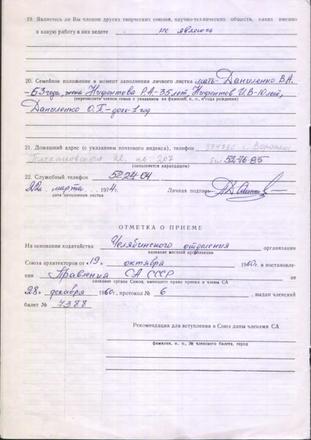 19. Являетесь ли Вы членом других творческих союзов, научно-технических обществ, каких именно
и какую работу в них ведете не являюсь
20. Семейное положение в момент заполнения личного листка мать-Даниленко В.А.
-63 года, жена Р.А-35 лет, И.В-10 лет,
(перечислите членов семьи с указанием их фамилий, и., о., года рождения)
Даниленко О.П-дочь-1 год
21. Домашний адрес (с указанием почтового индекса), телефон
52-76-85
(заполняется карандашом)
22. Служебный телефон 5-24-04
22 марта 1974г. Личная подпись
дата заполнения листка
ОТМЕТКА О ПРИЕМЕ
На основании ходатайства Челябинского отделения организации
название местной организации
Союза архитекторов от „19„ октября 1960г. и постановления
Правления СА СССР
название органа Союза, имеющего право приема в члены СА
28. декабря 1960г., протокол № 6, выдан членский
билет № 7388
Рекомендации для вступления в Союз даны членами СА
фамилия, и., о., № членского билета, город